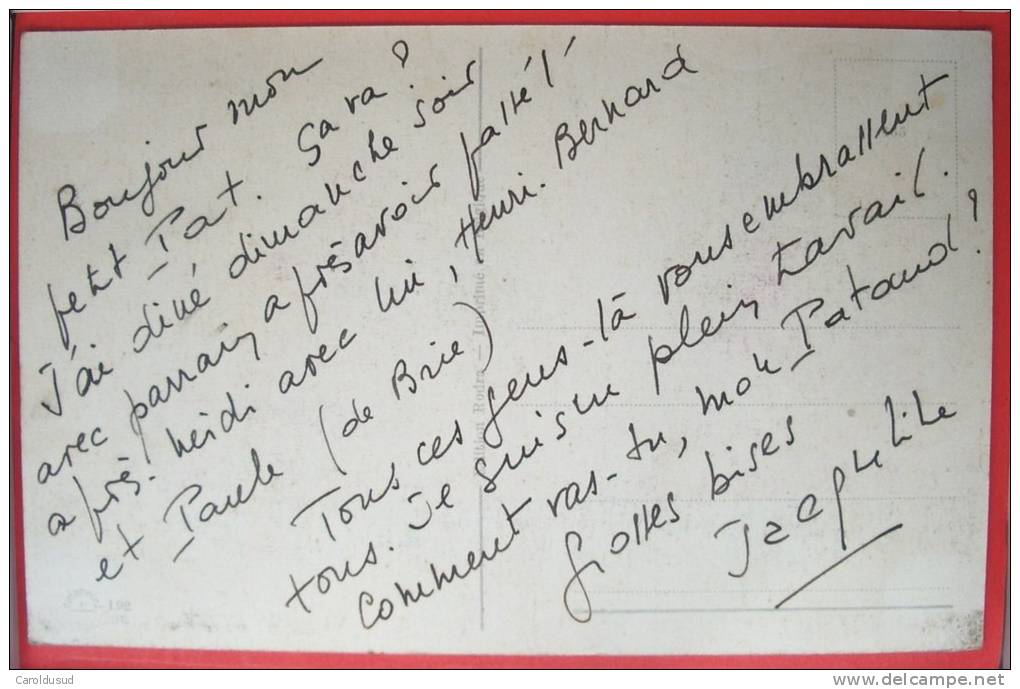 Bonjour mon
petit Pat. Ça va ?
J'ai diné dimanche soir
avec parrain après avoir passé l'
après-midi avec lui, Henri. Bernard
et Paule (de Brie)
Tous ces gens-là vous embrassent
tous. Je suis en plein travail.
Comment vas-tu, mon Pataud ?
Grosses bises
Jacqueline
Edition Rodra — Imprimé
Caroldusud
delcampe.net